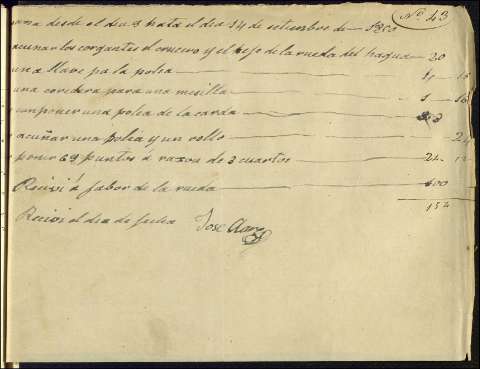 Nº 43
desde el dia 9 hata el dia 14 de setiembre de 1860
acuñar los corgantes el cruceiro y el hejo de la rueda del hagua 20
una llave pa la polea
una corredera para una mesilla
componer una polea de la carda
acuñar una polea y un rollo 24
poner 69 puntos á razon de 3 cuartos 24 12
Recivi á fabor de la rueda 100
154
Recivi el dia de fecha José